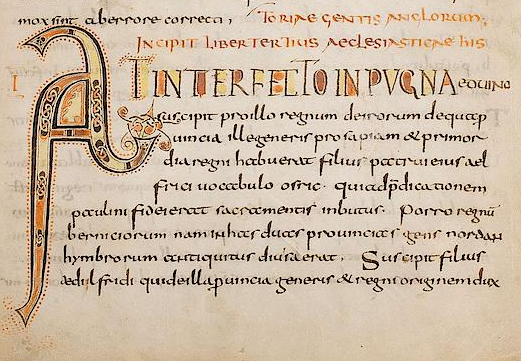 mox sint ab errore correcti; TORIAE GENTIS ANGLORUM;
INCIPIT LIBER TERTIUS AECLESIASTICAE HIS
I AT INTERFECTO IN PUGNA aeduino
suscipit pro illo regnum deirorum de qua p
uincia ille generis prosapiam & primor
dia regni habuerat filius patrui eius ael
frici uocabulo osric· qui ad p̄dicationem
paulini fidei erat sacramentis inbutus· Porro regnū
berniciorum nam in has duas prouincias gens nordan
hymbrorum antiquitus diuisa erat. Suscipit filius
aedilfridi qui de illa puincia generis & regni originem dux